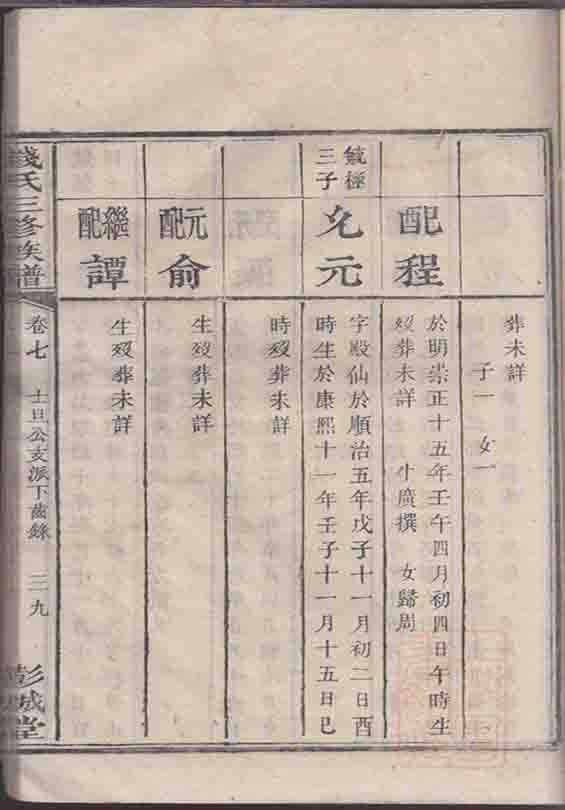 葬未詳
子一 女一
配程
於明崇正十五年壬午四月初四日午時生
歿葬未詳 廣撰 女歸周
毓極
三子
元
字殿仙於順治五年戊子十一月初二日酉
時生於康熙十一年壬子十一月十五日巳
時歿葬未詳
元配
俞
生歿葬未詳
繼配
譚
生歿葬未詳
錢氏三修族譜
卷七 士旦公支派下齒錄 三九
彭城堂